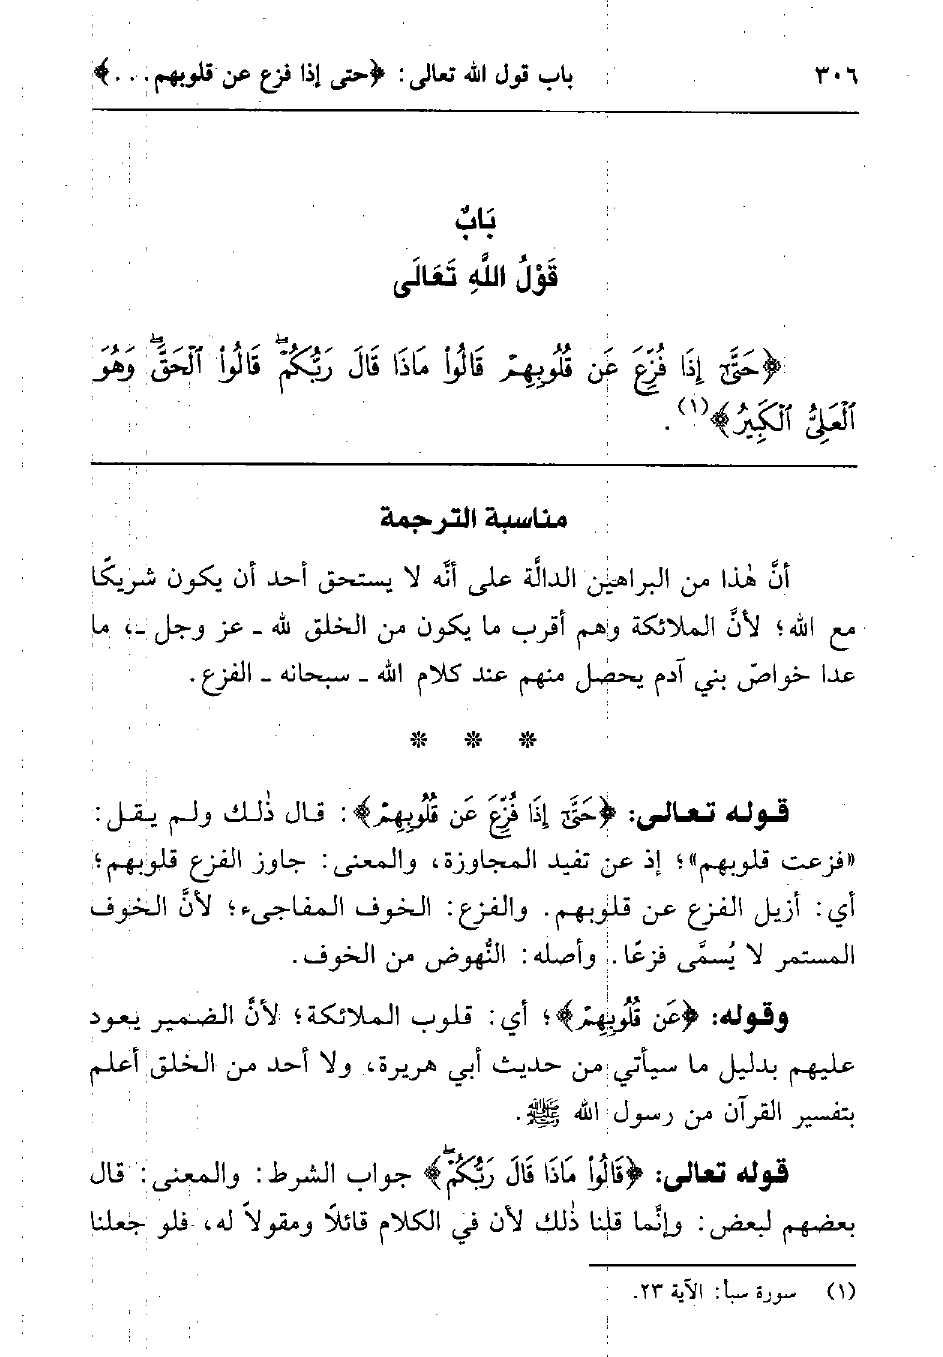 ٣٠٦ باب قول الله تعالى: ﴿حتى إذا فزع عن قلوبهم...﴾
بَابٌ
قَوْلُ اللَّهِ تَعَالَى
﴿حَتَّىٰٓ إِذَا فُزِّعَ عَن قُلُوبِهِمْ قَالُواْ مَاذَا قَالَ رَبُّكُمْۖ قَالُواْ ٱلْحَقَّۖ وَهُوَ
ٱلْعَلِىُّ ٱلْكَبِيرُ﴾(١).
مناسبة الترجمة
أنَّ هٰذا من البراهين الدالَّة على أنَّه لا يستحق أحد أن يكون شريكًا
مع الله؛ لأنَّ الملائكة وهم أقرب ما يكون من الخلق لله ـ عز وجل ـ، ما
عدا خواصّ بني آدم يحصل منهم عند كلام الله ـ سبحانه ـ الفزع.
* * *
قوله تعالى: ﴿حَتَّىٰٓ إِذَا فُزِّعَ عَن قُلُوبِهِمْ﴾: قال ذٰلك ولم يقل:
«فزعت قلوبهم»؛ إذ عن تفيد المجاوزة، والمعنى: جاوز الفزع قلوبهم؛
أي: أزيل الفزع عن قلوبهم. والفزع: الخوف المفاجىء؛ لأنَّ الخوف
المستمر لا يُسمَّى فزعًا. وأصله: النُّهوض من الخوف.
وقوله: ﴿عَن قُلُوبِهِمْ﴾؛ أي: قلوب الملائكة؛ لأنَّ الضمير يعود
عليهم بدليل ما سيأتي من حديث أبي هريرة، ولا أحد من الخلق أعلم
بتفسير القرآن من رسول الله ﷺ.
قوله تعالى: ﴿قَالُواْ مَاذَا قَالَ رَبُّكُمْۖ﴾ جواب الشرط: والمعنى: قال
بعضهم لبعض: وإنَّما قلنا ذٰلك لأن في الكلام قائلاً ومقولاً له، فلو جعلنا
(١) سورة سبأ: الآية ٢٣.